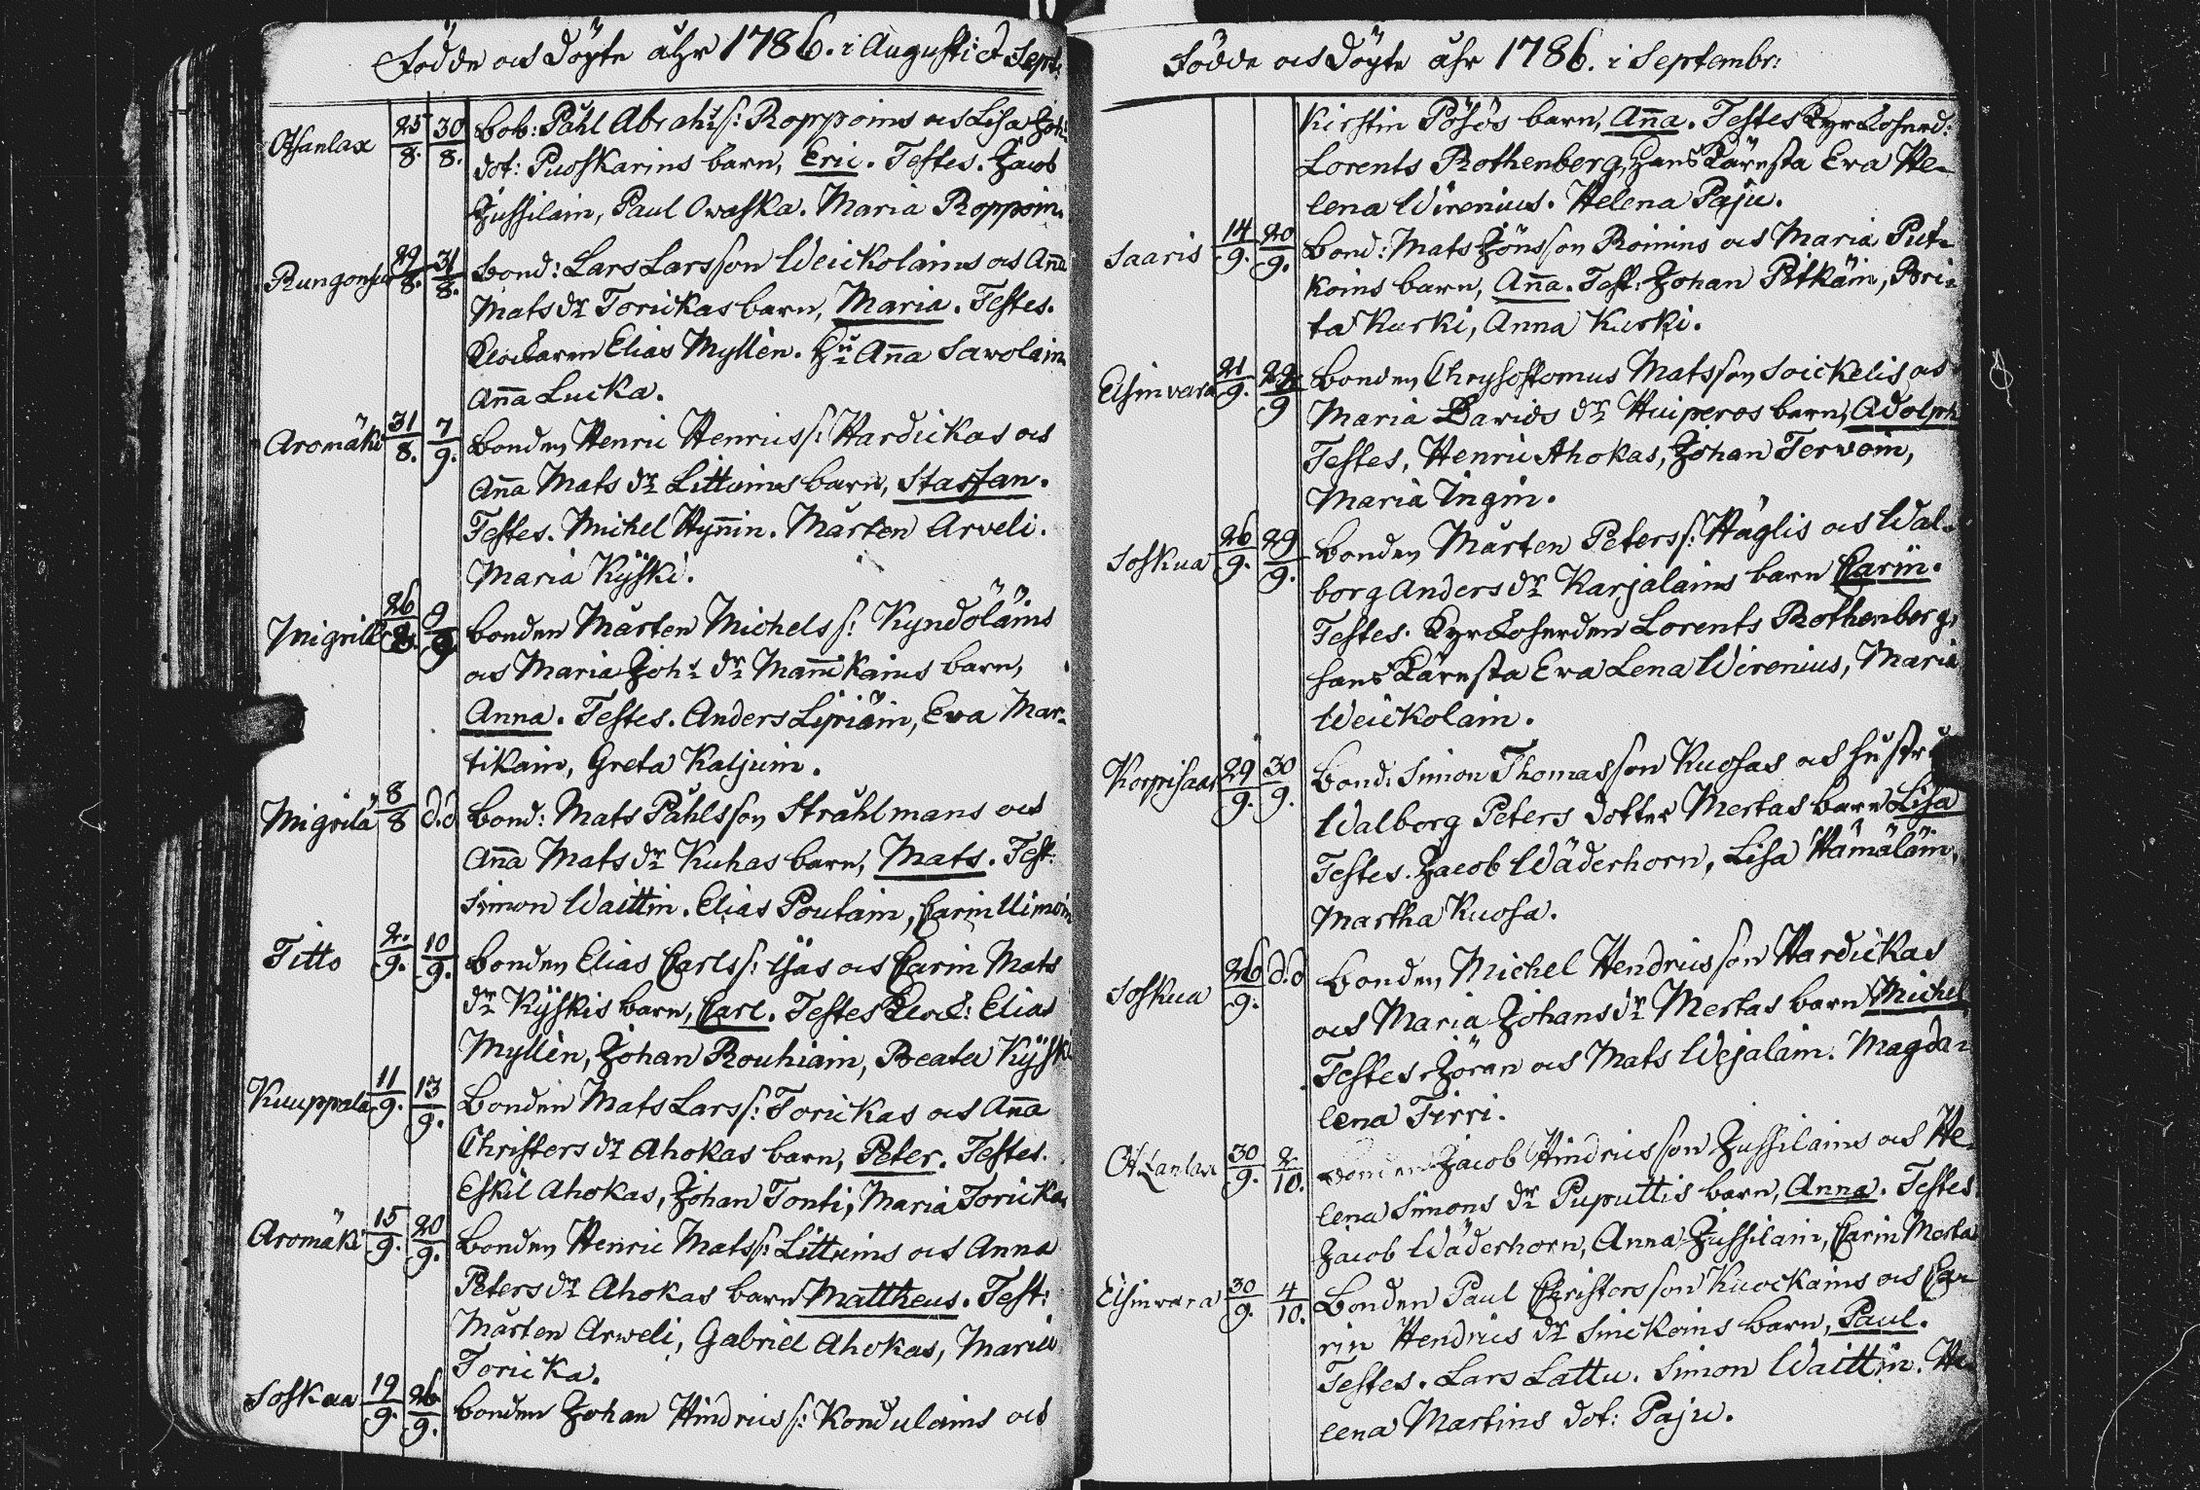 Födde och Döpte åhr 1786. i Augusti et Sept:
Otsanlax 25/8. 30/8. Bob: Påhl Abrahs: Roppoins och Lisa Joh:
dot: Puoskarins barn, Eric. Testes. Jacob
Jussilain, Paul Owaska. Maria Roppoin.
29/8. 31/8. Bond: Lars Larsson Weickolains och Aña
Mats dr Torickas barn, Maria. Testes.
Klockaren Elias Myllèn. Hu Aña Savolain
Aña Lucka.
Aromäki 31/8. 7/9. Bonden Henric Henrics: Hardickas och
Aña Mats dr Littuins barn, Staffan.
Testes. Michel Hyñin. Mårten Arveli.
Maria Kÿski.
Migrilä 26/8. 9/9 bonden Mårten Michels s: Kyndöläins
och Maria Joh: dr Mañikains barn,
Anna. Testes. Anders Lipiäin, Eva Mar-
tikain, Greta Kaljuin.
Migrilä 8/8 d.d Bond: Mats Påhlsson Stråhlmans och
Aña Mats dr Kuhas barn, Mats. Test:
Simon Waittin. Elias Poutain, Carin Uimoin
Titto 2/9. 10/9. Bonden Elias Carls s: Ijäs och Carin Mats
dr Kÿskis barn, Carl. Testes Klock: Elias
Myllèn, Johan Rouhiain, Beata Kÿski
Kuuppala 11/9. 13/9. Bonden Mats Lars s: Torickas och Aña
Christers dr Ahokas barn, Peter. Testes.
Eskil Ahokas, Johan Tonti, Maria Toricka
Aromäki 15/9. 20/9. Bonden Henric Mats s: Littuins och Anna
Peters dr Ahokas barn Mattheus. Test:
Mårten Arweli, Gabriel Ahokas, Maria
Toricka.
Soskua 19/9. 26/9. bonden Johan Hindrics s: Kondulains och
Födde och Döpte åhr 1786. i Septembr:
Kirstin Pösös barn, Aña. Testes Kyrckoherd:
Lorents Rothenberg, Hans Käresta Eva He-
lena Wirenius. Helena Paju.
Saaris 14/9. 20/9. Bond: Mats Jönsson Roinins och Maria Put-
koins barn, Aña. Test: Johan Pitkäin, Bri-
ta Kurki, Anna Kurki.
Elsinvara 21/9. 24/9 Bonden Chrysostomus Matsson Soickelis och
Maria Davids dr Huiperos barn, Adolph
Testes, Henric Ahokas, Johan Tervoin,
Maria Ingin.
Soskua 26/9. 29/9. Bonden Mårten Peters s: Häglis och Wal-
borg Anders dr Karjalains barn Carin.
Testes. Kyrckoherden Lorents Rothenberg,
hans Käresta Eva Lena Wirenius, Maria
Weickolain.
Korpisaari 29/9. 30/9. Bond: Simon Thomasson Kuosas och hustru
Walborg Peters dotter Mertas barn Lisa
Testes. Jacob Wäderhorn, Lisa Hämäläin,
Martha Kuosa.
Soskua 26/9. d.d Bonden Michel Hendricsson Hardickas
och Maria Johans dr Mertas barn Michel
Testes. Jöran och Mats Wejalain. Magda-
lena Tirri.
30/9. 2/10. Bonden Jacob Hindricsson Jussilains och He-
lena Simons dr Puputtis barn, Anna. Testes
Jacob Wäderhorn, Anna Jussilain, Carin Merta
Elsinvara 30/9. 4/10. Bonden Paul Christersson Kuockains och Ca-
rin Hendrics dr Sinckoins barn, Paul.
Testes. Lars Lattu. Simon Waittin. He-
lena Martins dot: Paju.